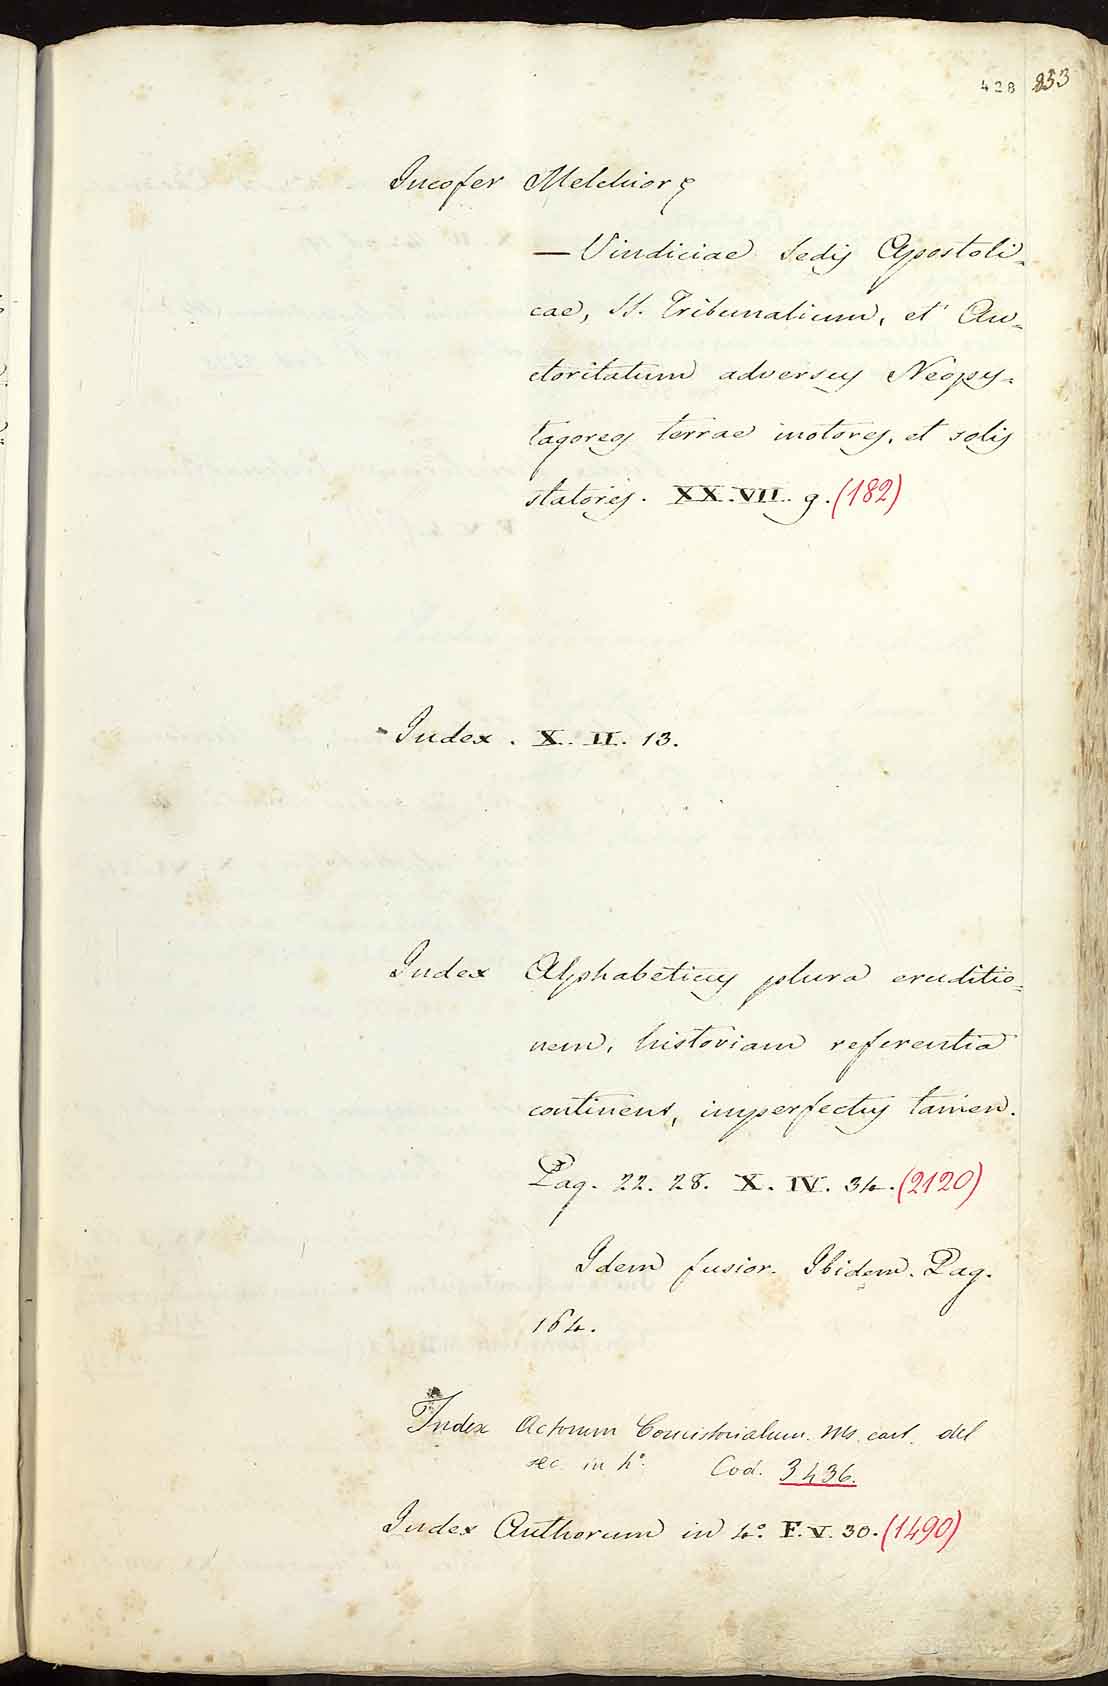 428 253
Incofer Melchior,
— Vindiciae Sedis Apostoli-
cae, SS. Tribunalium, et Au-
ctoritatum adversus Neopy-
tagoreos terrae motores, et solis
statores. XX. VII. 9. (182)
Index. X. II. 13.
Index Alphabeticus plura eruditio-
nem, historiam referentia
continens, imperfectus tamen.
Pag. 22. 28. X. IV. 34. (2120)
Idem fusior. Ibidem. Pag.
164.
Index Actorum Concistorialum. Ms. cart. del
sec. in 4°. Cod. 3436.
Index Authorum in 4°. F. V. 30. (1490)